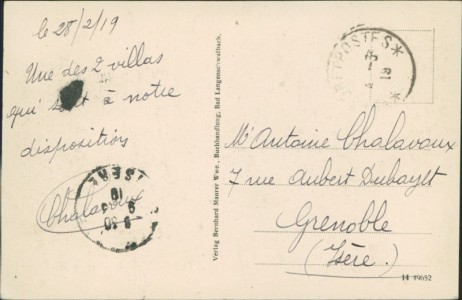 le 28/2/19
Une des 2 villas
qui sont à notre
disposition
Chalavoux
ISERE
POSTES
Verlag Bernhard Maurer Wwe., Buchhandlung, Bad Langenschwalbach.
Mr Antoine Chalavoux
7 rue Aubert Dubayet
Grenoble
(Isère)
14 19652